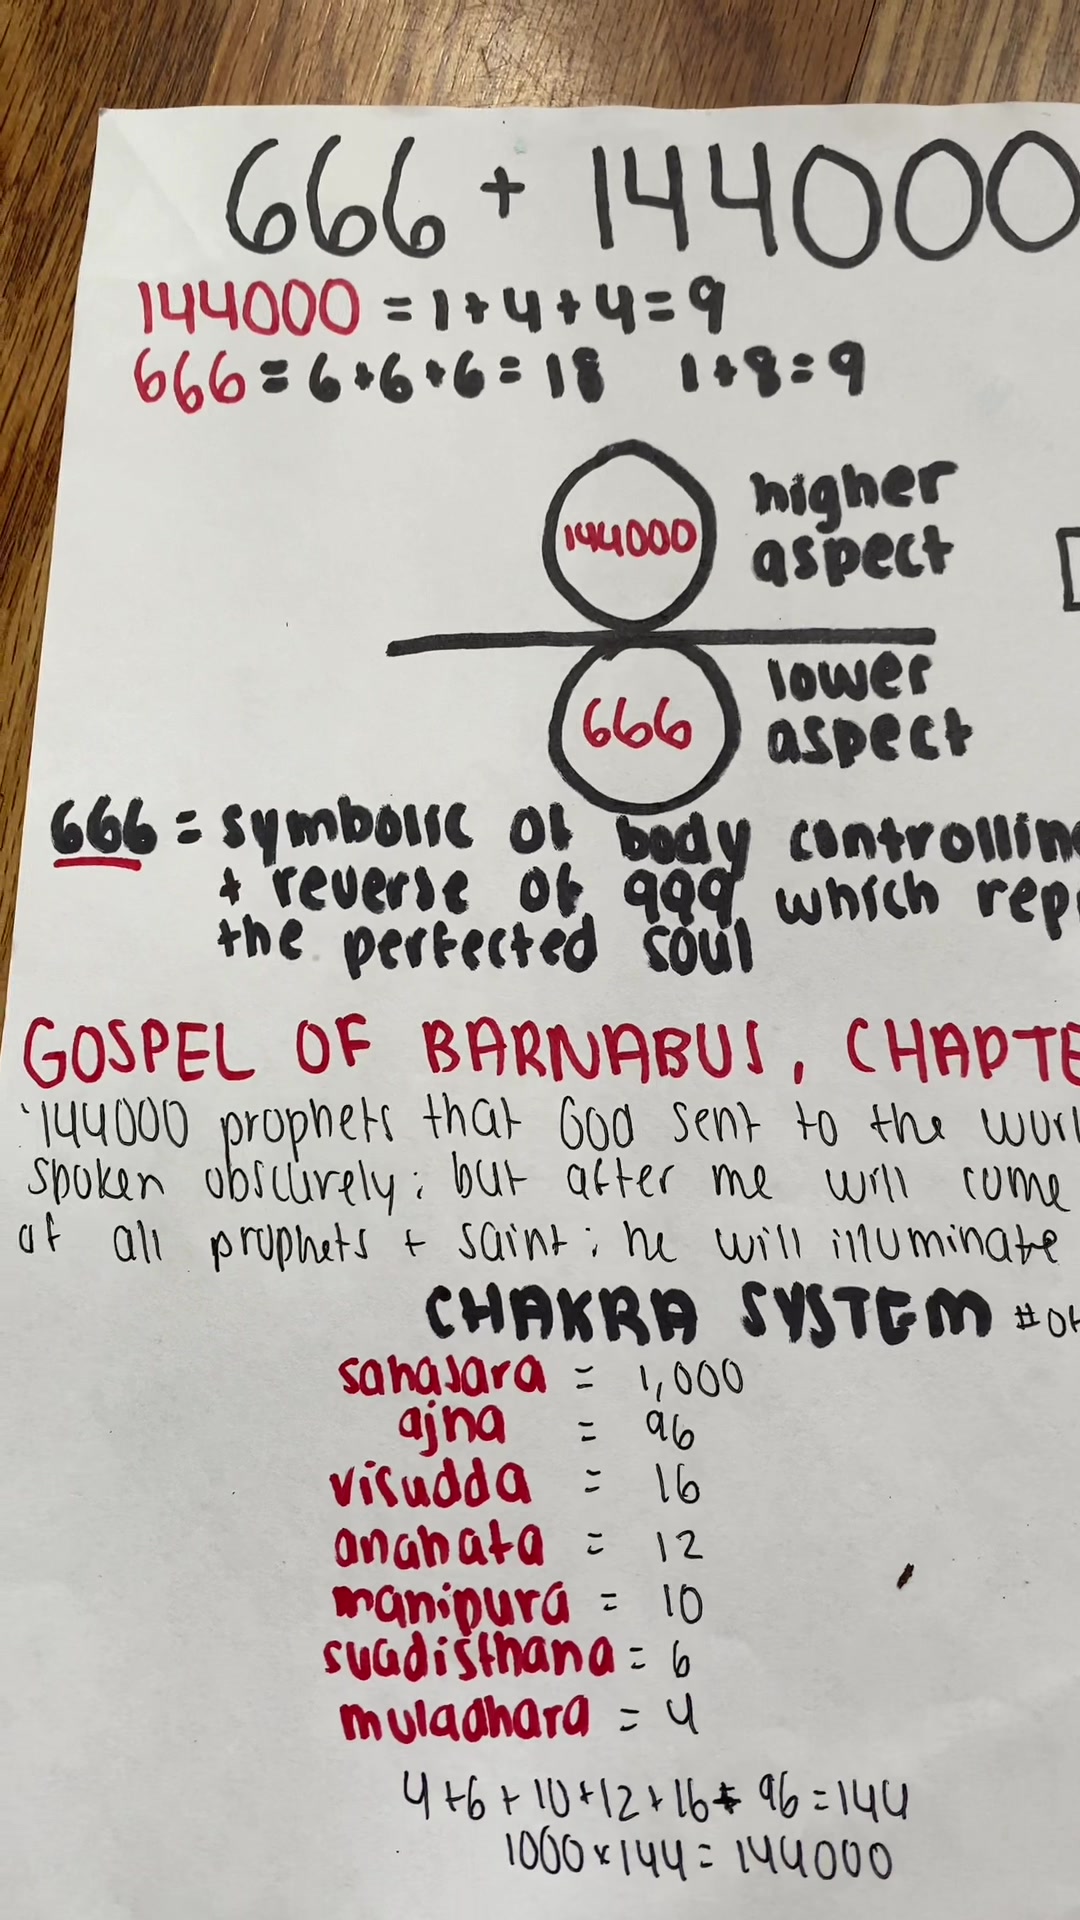 666 + 144000
144000 = 1+4+4=9
666 = 6+6+6= 18 1+8=9
144000
higher
aspect
666
lower
aspect
666 = symbolic of body controllin
+ reverse of 999 which rep
the perfected soul
GOSPEL OF BARNABUS, CHAPTE
"144000 prophets that God sent to the worl
spoken obscurely; but after me will come
of all prophets + saint; he will illuminate
CHAKRA SYSTEM # of
sahasara = 1,000
ajna = 96
visudda = 16
anahata = 12
manipura = 10
svadisthana = 6
muladhara = 4
4+6+10+12+16+96=144
1000x144=144000